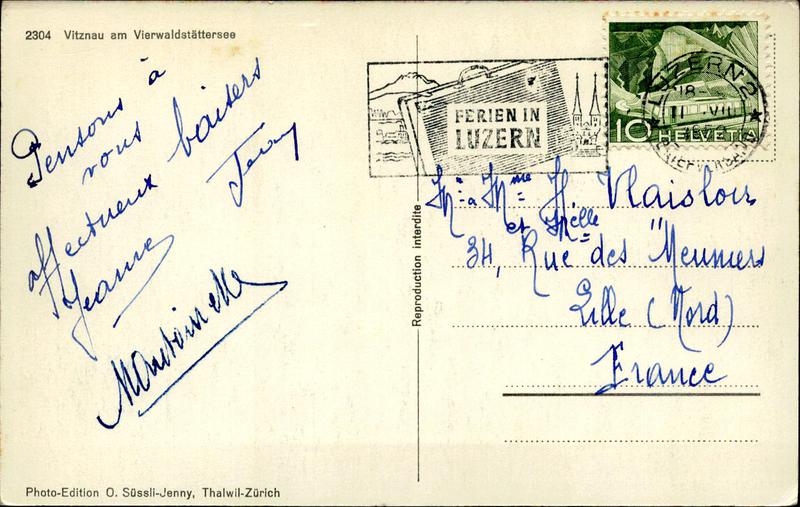 2304 Vitznau am Vierwaldstättersee
Pensons à
vous baisers
affectueux
Jeanne
FERIEN IN
LUZERN
LUZERN 2
10 HELVETIA
Mr & Mme H.
et Melle
34, Rue des Meuniers
Lille (Nord)
France
Reproduction interdite
Photo-Edition O. Süssli-Jenny, Thalwil-Zürich